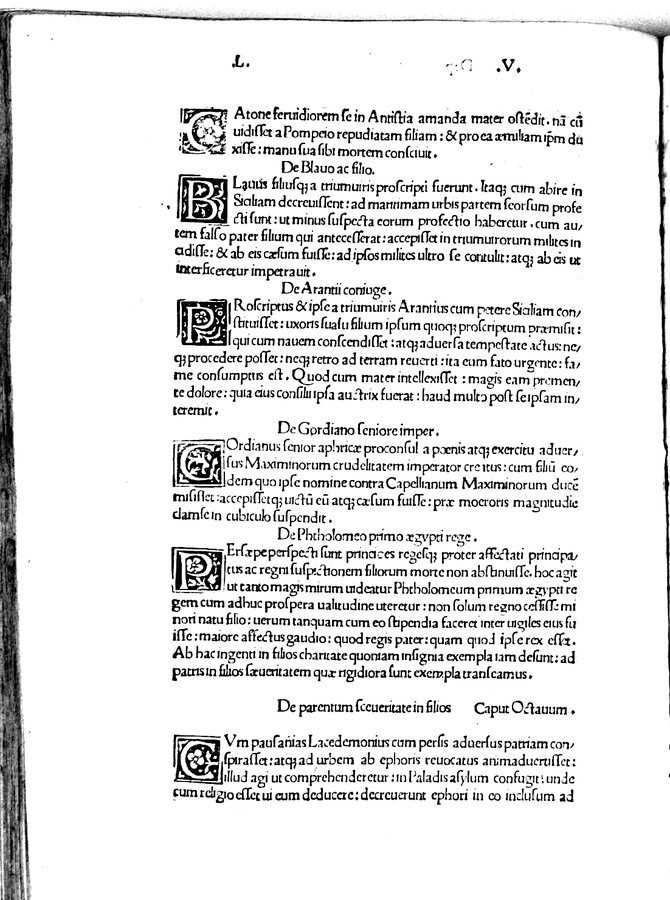 .L. .V.
CAtone feruidiorem se in Antistia amanda mater ostēdit. nā cū
uidisset a Pompeio repudiatam filiam: & pro ea æmiliam ip̄m du
xisse: manu sua sibi mortem consciuit.
De Blauo ac filio.
BLauus filiusq; a triumuiris proscripti fuerunt. Itaq; cum abire in
Siciliam decreuissent: ad maritimam urbis partem seorsum profe
cti sunt: ut minus suspecta eorum profectio haberetur. cum au/
tem falso pater filium qui antecesserat: accepisset in triumuirorum milites in
cidisse: & ab eis cæsum fuisse: ad ipsos milites ultro se contulit: atq; ab eis ut
interficeretur impetrauit.
De Arantii coniuge.
PRoscriptus & ipse a triumuiris Arantius cum petere Siciliam con/
stituisset: uxoris suasu filium ipsum quoq; proscriptum præmisit:
qui cum nauem conscendisset: atq; aduersa tempestate actus: ne/
q; procedere posset: neq; retro ad terram reuerti: ita eum fato urgente: fa/
me consumptus est. Quod cum mater intellexisset: magis eam premen/
te dolore: quia eius consilii ipsa auctrix fuerat: haud multo post se ipsam in/
teremit.
De Gordiano seniore imper.
GOrdianus senior aphricæ proconsul a pœnis atq; exercitu aduer/
sus Maximinorum crudelitatem imperator creatus: cum filiū eo/
dem quo ipse nomine contra Capellianum Maximinorum ducē
misisset: accepissetq; uictū eū atq; cæsum fuisse: præ moeroris magnitudie
clam se in cubiculo suspendit.
De Phtholomeo primo ægypti rege.
PErsæpe perspecti sunt principes regesq; propter affectati principa/
tus ac regni suspectionem filiorum morte non abstinuisse. hoc agit
ut tanto magis mirum uideatur Phtholomeum primum ægypti re
gem cum adhuc prospera ualitudine uteretur: non solum regno cessisse mi
nori natu filio: uerum tanquam cum eo stipendia faceret inter uigiles eius fu
isse: maiore affectus gaudio: quod regis pater: quam quod ipse rex esset.
Ab hac ingenti in filios charitate quoniam insignia exempla iam desunt: ad
patris in filios sæueritatem quæ rigidiora sunt exempla transeamus.
De parentum sceueritate in filios Caput Octauum.
CVm pausanias Lacedemonius cum persis aduersus patriam con/
spirasset: atq; ad urbem ab ephoris reuocatus animaduertisset:
illud agi ut comprehenderetur: in Paladis asylum confugit: unde
cum religio esset ui eum deducere: decreuerunt ephori in eo inclusum ad